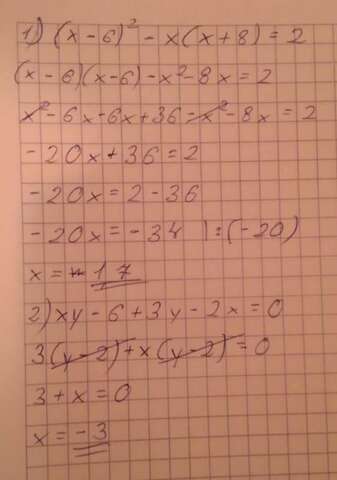 1) (x-6)² - x(x+8) = 2
(x-6)(x-6) - x² - 8x = 2
x² - 6x - 6x + 36 - x² - 8x = 2
-20x + 36 = 2
-20x = 2 - 36
-20x = -34 |:(-20)
x = 1 7
2) xy - 6 + 3y - 2x = 0
3(y-2) + x(y-2) = 0
3 + x = 0
x = -3